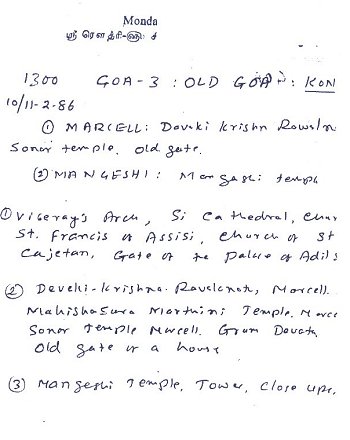 Monda
ஸ்ரீ ரௌத்ரி-ஸ்ரீ
1300 GOA-3 : OLD GOA : KON
10/11-2-86
① MARCELL: Devaki Krishn Rawaln
Sonar temple. Old gate.
② MANGESHI: Mangashi temple
① Viseray's Arch, Si Cathedral, Chur
St. Francis of Assisi, Church of St
Cajetan, Gate of the Palace of Adils
② Devehi-Krishna-Ravalnath, Marcell.
Mahishasura Marthini Temple. Marce
Sonar Temple Marcell. Gram Devata
Old gate of a house
③ Mangeshi Temple, Tower, Close ups.